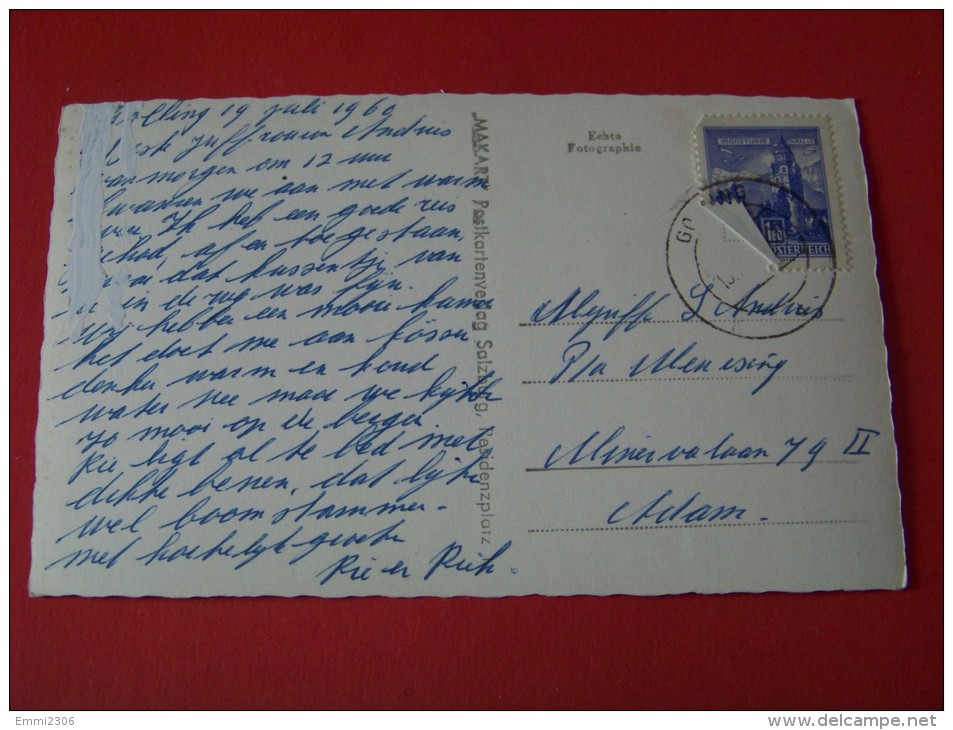 Golling 19 juli 1960
Juffrouw Andries
vanmorgen om 12 uur
kwamen we aan met warm
Ik heb een goede reis
gehad, af en toe gestaan,
dat kussentje van
in de rug was fijn.
Wij hebben een mooie kamer
het doet me aan
denken warm en koud
water nee maar we kijken
zo mooi op de bergen
Rie ligt al te bed met
dikke benen, dat lijken
wel boomstammen.
met hartelijk groeten
Rie en
"MAKART" Postkartenverlag Salzburg, Residenzplatz
Echte
Fotographie
MÜNZTURM HALL i. T.
1.80
ÖSTERREICH
GO ING
Mejuffr S Andries
P/a Menssing
Minervalaan 79 II
Adam.
Emmi2306
delcampe.net